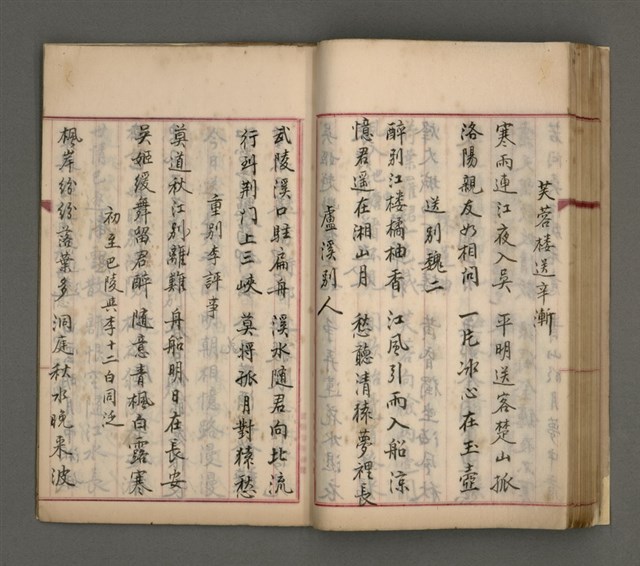 芙蓉楼送辛漸
寒雨連江夜入吳 平明送客楚山孤
洛陽親友如相問 一片冰心在玉壺
送別魏二
醉別江楼橘柚香 江风引雨入船凉
憶君遥在湘山月 愁聽清猿夢裡長
盧溪別人
武陵溪口駐扁舟 溪水随君向北流
行到荆门上三峡 莫将孤月對猿愁
重別李評事
莫道秋江別離難 舟船明日在長安
吳姬缓舞留君醉 随意青楓白露寒
初至巴陵與李十二白同泛
楓岸紛紛落葉多 洞庭秋水晚来波